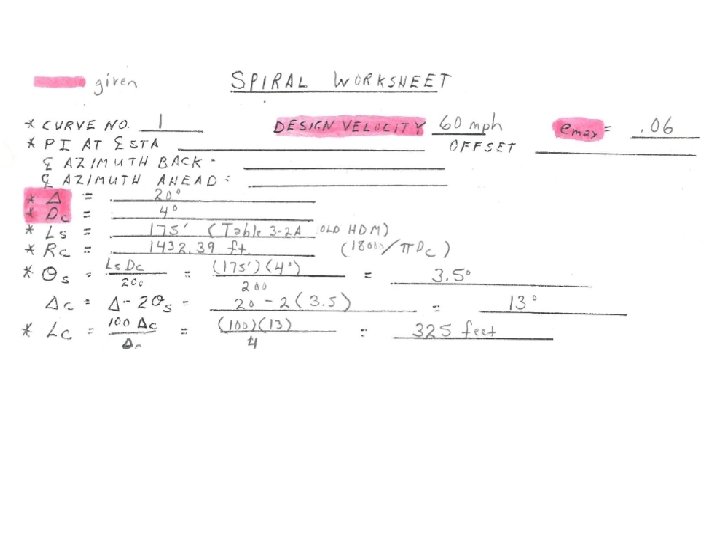 given SPIRAL WORKSHEET
* CURVE NO. 1 DESIGN VELOCITY 60 mph emax = .06
* PI AT ℄ STA OFFSET
℄ AZIMUTH BACK =
℄ AZIMUTH AHEAD =
* Δ = 20°
* Dc = 4°
* Ls = 175' (Table 3-2A OLD HDM)
* Rc = 1432.39 ft (18000/πDc)
* Θs = Ls Dc / 200 = (175')(4°) / 200 = 3.5°
Δc = Δ - 2Θs = 20 - 2(3.5) = 13°
* Lc = 100 Δc / Dc = (100)(13) / 4 = 325 feet